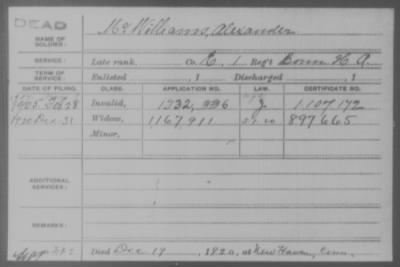 DEAD
NAME OF SOLDIER: McWilliams, Alexander
SERVICE: Late rank, Co. E, 1 Reg't Conn H. A.
TERM OF SERVICE: Enlisted , 1 Discharged , 1
DATE OF FILING. CLASS. APPLICATION NO. LAW. CERTIFICATE NO.
1905 Feb 28 Invalid, 1332,996 J. 1.107.172
1920 Dec 31 Widow, 1,167,911 897665
Minor,
ADDITIONAL SERVICES:
REMARKS:
Died Dec 19, 1920, at New Haven, Conn.